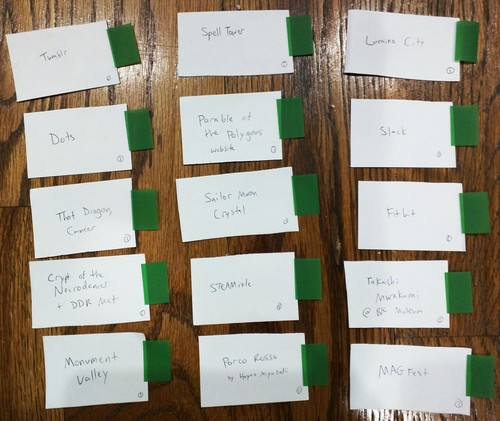 Tumblr
Spell Tower
Lumino City
Dots
Parable of
the Polygons
website
Slack
That Dragon,
Cancer
Sailor Moon
Crystal
Fitbit
Crypt of the
Necrodancer
+ DDR Mat
STEAMrole
Takashi
Murakami
@ BK Museum
Monument
Valley
Porco Rosso
by Hayao Miyazaki
MAGFest